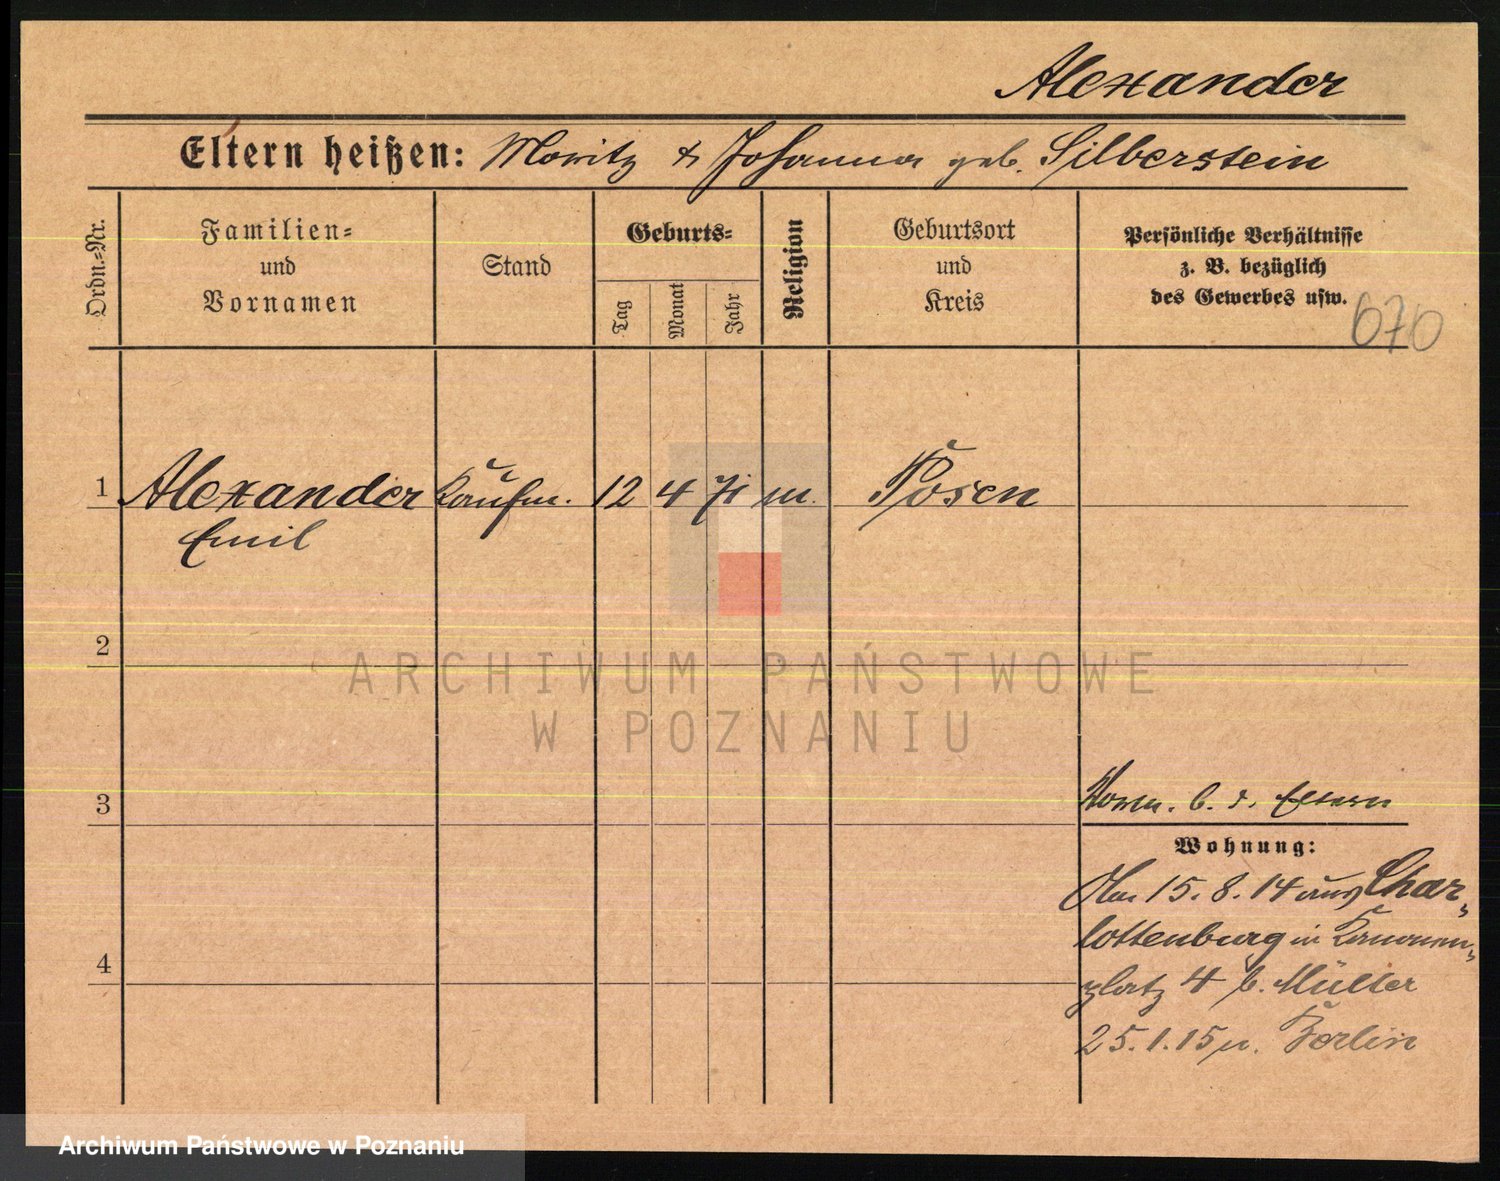 Alexander
Eltern heißen: Moritz & Johanna geb. Silberstein
Ordn.-Nr.
Familien-
und
Vornamen
Stand
Geburts-
Tag
Monat
Jahr
Religion
Geburtsort
und
Kreis
Persönliche Verhältnisse
z. B. bezüglich
des Gewerbes usw.
670
1 Alexander Kaufm. 12 4 71 m. Posen
Emil
2
3
b. d. Eltern
Wohnung:
15. 8. 14 aus Char-
lottenburg in Kanonen-
platz 4 b. Müller
25. 1. 15 n. Berlin
4
ARCHIWUM PAŃSTWOWE
W POZNANIU
Archiwum Państwowe w Poznaniu